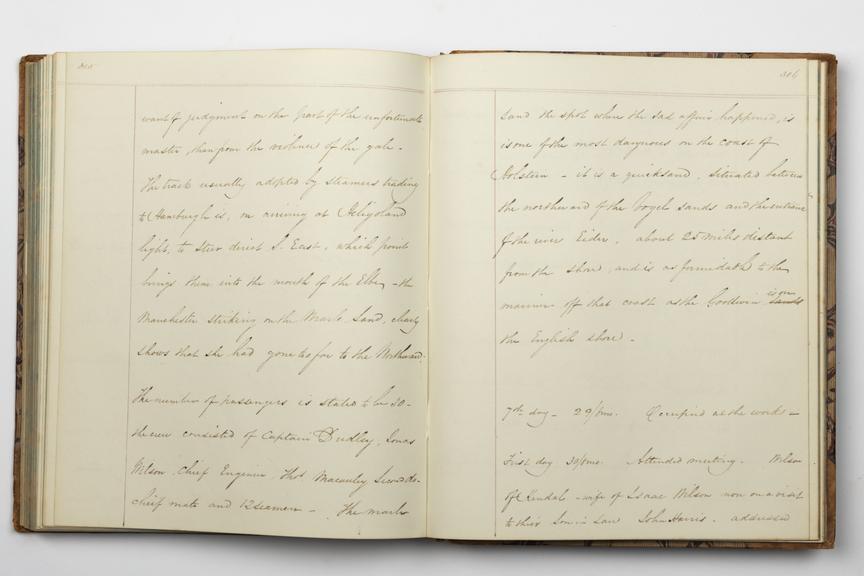 want of judgment on the part of the unfortunate
master, than from the violence of the gale -
The track usually adopted by steamers trading
to Hamburgh is, on arriving at Heligoland
light, to steer direct S. East, which point
brings them into the mouth of the Elbe, - the
Manchester striking on the Mark Sand, clearly
shows that she had gone too far to the Northward.
The number of passengers is stated to be 30 -
the crew consisted of Captain Dudley, Jonas
Wilson, Chief Engineer, Thos Macauley Second do -
chief mate and 12 seamen - The mark
306
Sand the spot where the sad affair happened, is
is one of the most dangerous on the coast of
Holstein - it is a quicksand, situated between
the northward of the Vogel sands and the entrance
of the river Eider, about 25 miles distant
from the shore, and is as formidable to the
mariner off that coast as the Goodwin is on
the English shore -
7th day - 29/ mo. Occupied at the works -
First day 30/ mo. Attended meeting. Wilson
of Kendal - wife of Isaac Wilson now on a visit
to their Son in Law John Harris. addressed